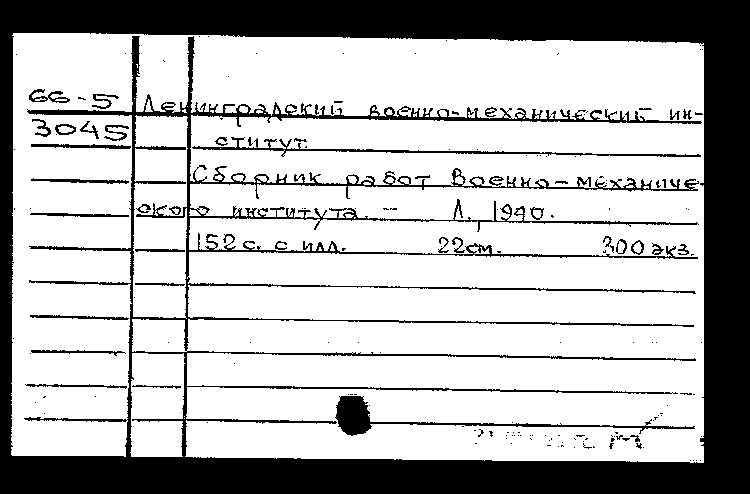 66-5 Ленинградский военно-механический ин-
3045 ститут.
Сборник работ Военно-механиче-
ского института. - Л., 1940.
152 с. с илл. 22 см. 300 экз.